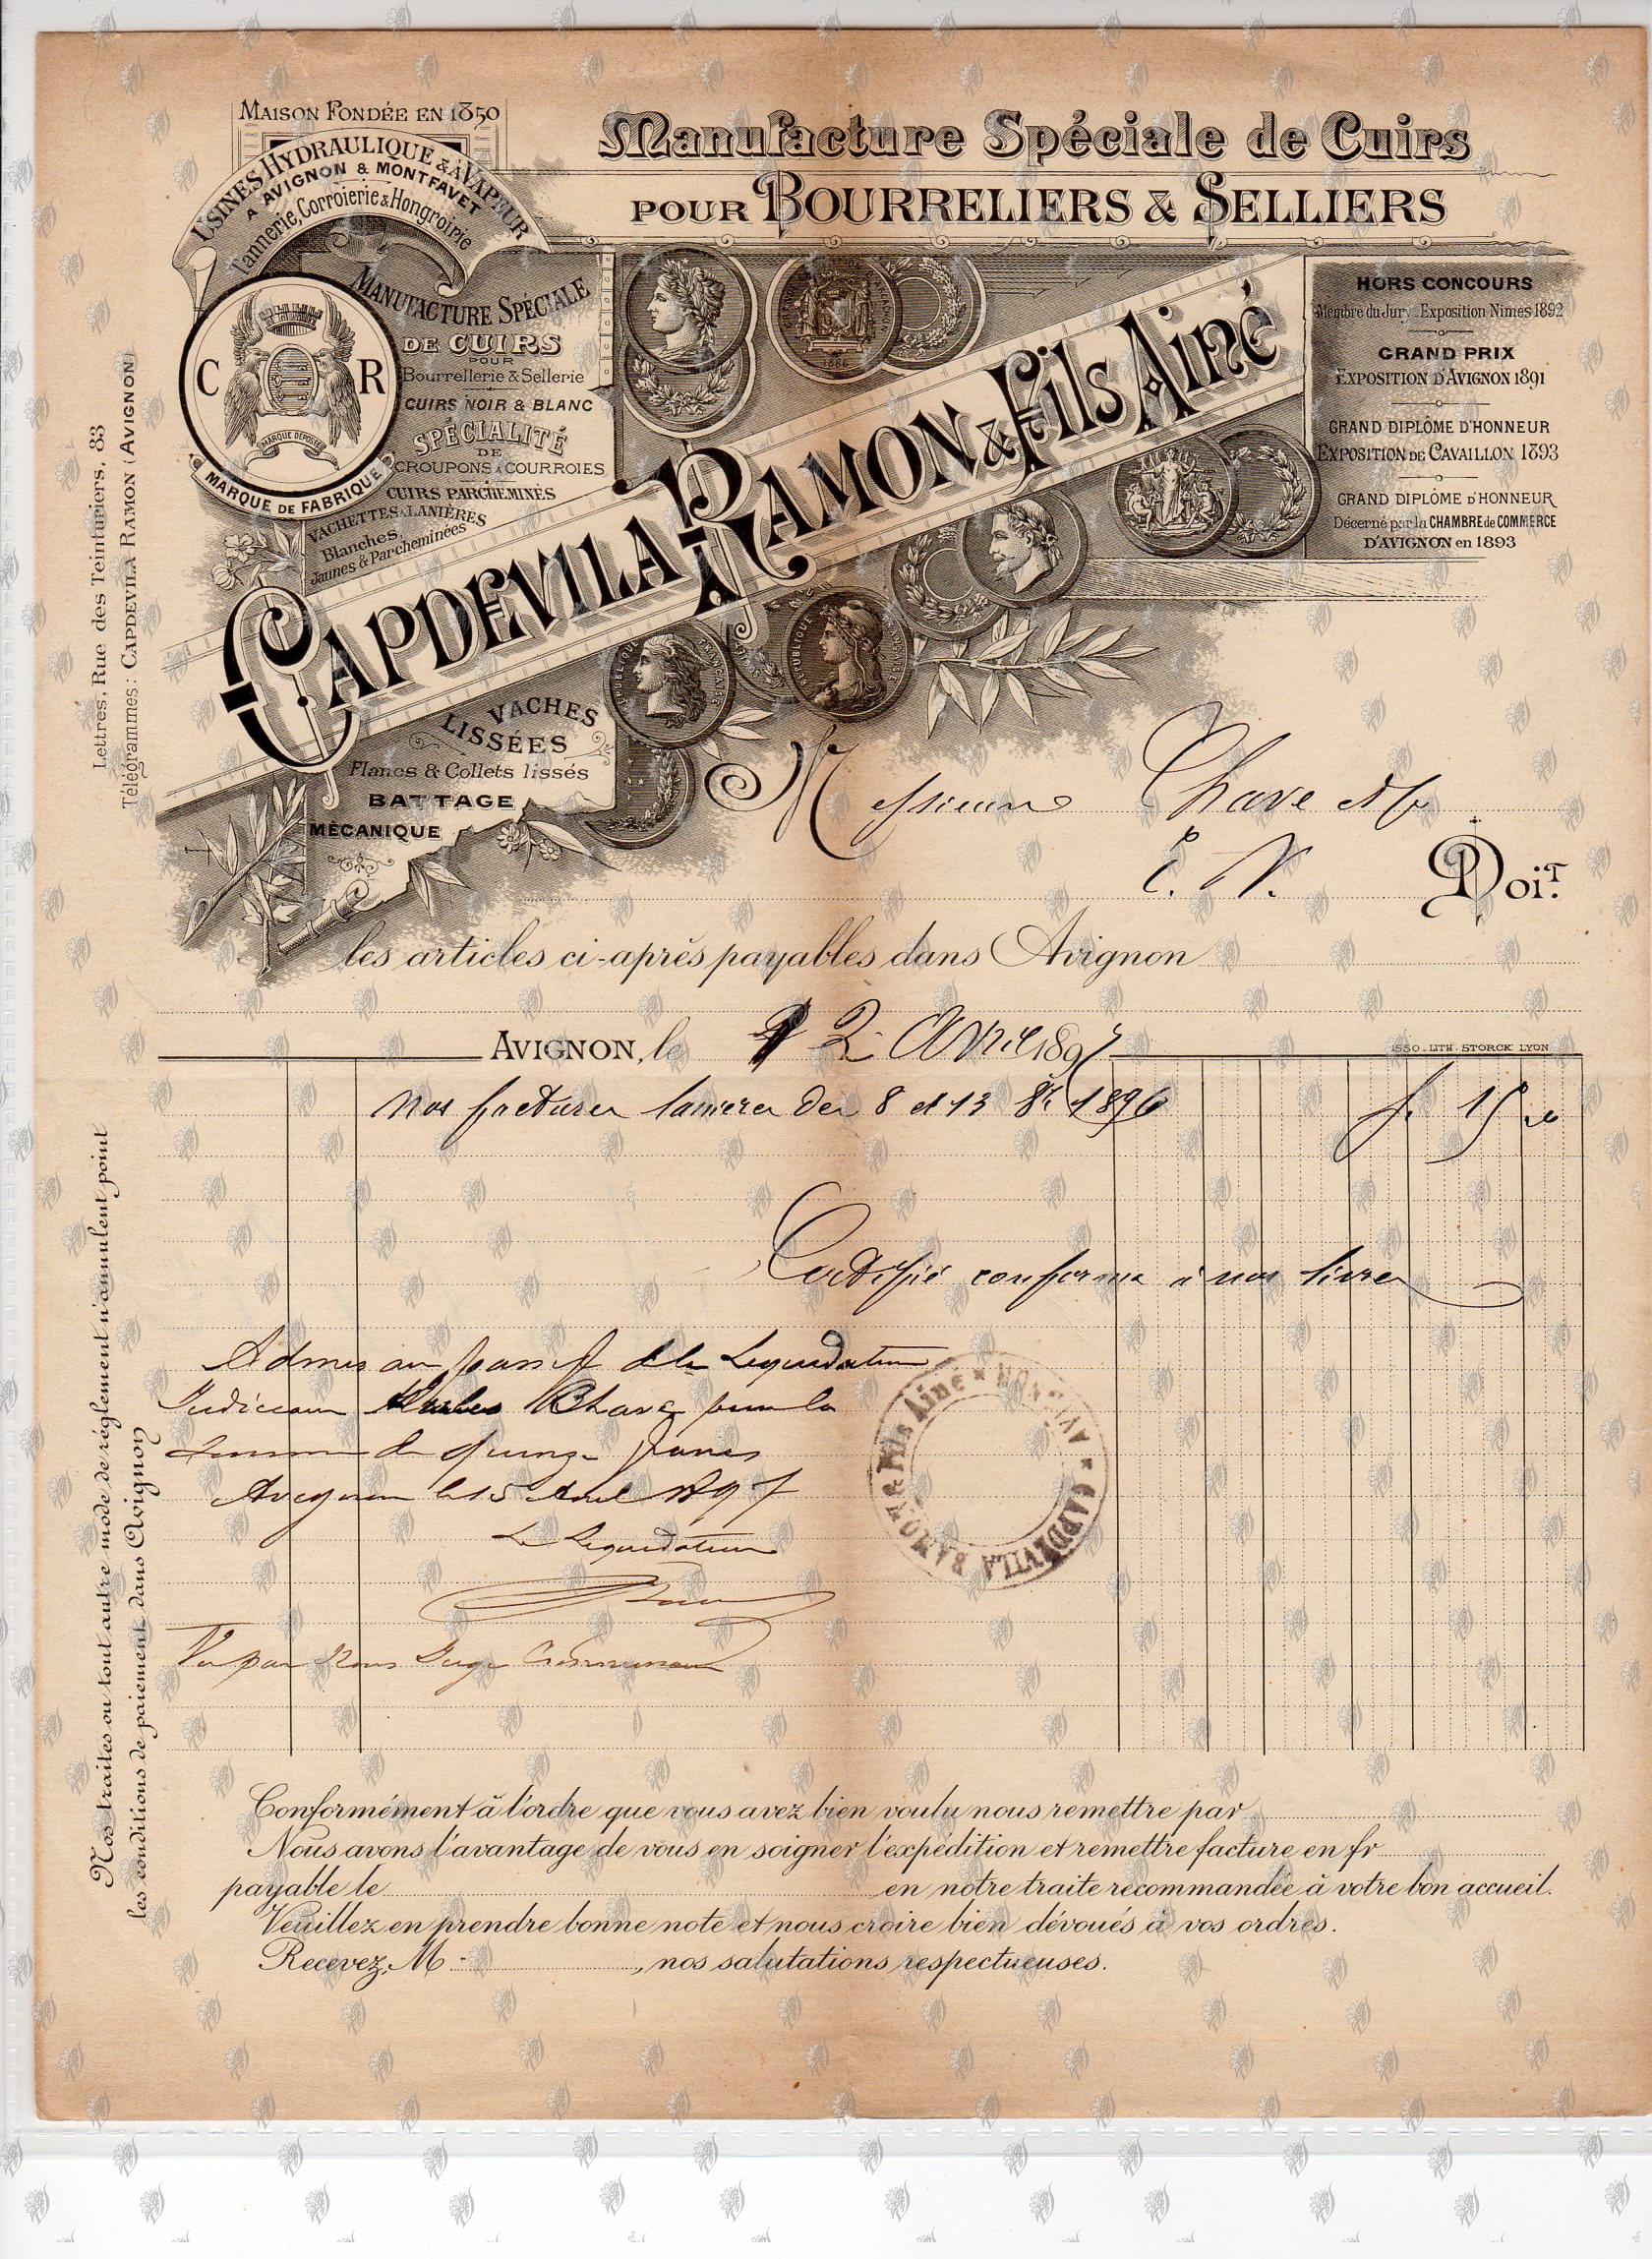 MAISON FONDÉE EN 1850
USINES HYDRAULIQUE & À VAPEUR
A AVIGNON & MONTFAVET
Tannerie, Corroierie & Hongroirie
Manufacture Spéciale de Cuirs
POUR BOURRELIERS & SELLIERS
C R
MARQUE DÉPOSÉE
MARQUE DE FABRIQUE
MANUFACTURE SPECIALE
DE CUIRS
POUR
Bourrellerie & Sellerie
CUIRS NOIR & BLANC
SPÉCIALITÉ
DE
CROUPONS À COURROIES
CUIRS PARCHEMINÉS
VACHETTES LANIÈRES
Blanches,
Jaunes & Parcheminées
CAPDEVILA RAMON & Fils Ainé
HORS CONCOURS
Membre du Jury Exposition Nimes 1892
GRAND PRIX
EXPOSITION D'AVIGNON 1891
GRAND DIPLÔME D'HONNEUR
EXPOSITION DE CAVAILLON 1893
GRAND DIPLÔME D'HONNEUR
Décerné par la CHAMBRE de COMMERCE
D'AVIGNON en 1893
1886
RÉPUBLIQUE FRANÇAISE
RÉPUBLIQUE FRANÇAISE
VACHES
LISSÉES
Flancs & Collets lissés
BATTAGE
MÉCANIQUE
Lettres, Rue des Teinturiers, 83
Télégrammes: CAPDEVILA RAMON (AVIGNON)
Messieurs Chave
E. V. Doit.
les articles ci-après payables dans Avignon
AVIGNON, le 2 Avril 1897
1550 - LITH. STORCK LYON
Nos factures lanieres des 8 et 13 8bre 1896 f. 15
Certifié conforme à nos livres
Admis au passif de la Liquidation
Judiciaire Chave pour la
somme de quinze francs
Avignon le 15 Avril 1897
Le Liquidateur
Vu par Nous Juge Commissaire
CAPDEVILA RAMON & Fils Ainé * AVIGNON *
Nos traites ou tout autre mode de règlement n'annulent point
les conditions de paiement dans Avignon
Conformément à l'ordre que vous avez bien voulu nous remettre par
Nous avons l'avantage de vous en soigner l'expédition et remettre facture en fr
payable le en notre traite recommandée à votre bon accueil.
Veuillez en prendre bonne note et nous croire bien dévoués à vos ordres.
Recevez, M , nos salutations respectueuses.